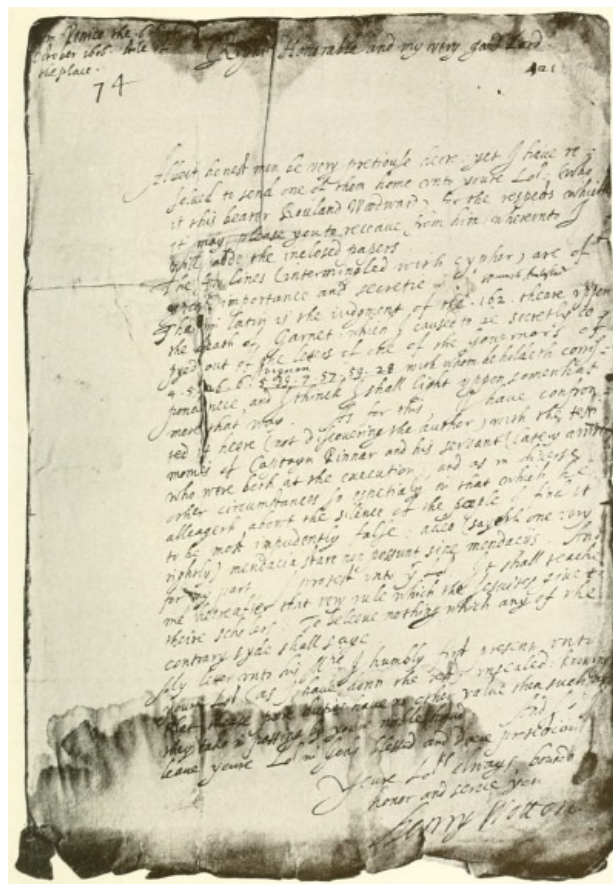 Venice the 6
October 1606 stile of
the place.
74
Right Honorable and my very good Lord.
421
Albeit honest men be very pretiouse heere: yet I have re-
solved to send one of them home unto youre Lop: (who
is this bearer Rouland Woodward) for the respects which
it may please you to receave from him: wherunto I
will adde the inclosed papers
The lines (intermingled with cypher) are of
importance and secretie:
in latin is the iudgment of the .162. theare uppon
the death of Garnet: which I caused to be secretly co-
pyed out of the leters of one of the governors of
with whom he holdeth corris-
pondence, and I thinck I shall light uppon somewhat
more that way. As for this, I have confron-
ted it heere (not discovering the author) with the testi-
monies of Captayn Pinnar and his servant
who were both at the execution, and as in diverse
other circumstances so especially in that which he
alleageth about the silence of the people I finde it
to be most impudently false: adeo (sayeth one very
rightly) mendacia stare non possunt sine mendacijs. And
for my part I protest unto yr Lop: it shall teache
me heereafter that very rule which the Jesuites give to
theire scholers, To beleeve nothing which any of the
contrary syde shall saye.
My leter unto his Matie I humbly first present unto
youre Lop: (as I have donn the rest) unsealed: knowing
that these poore duties have no other value then such as
they take in passing by youre noble hand. And so I
leave youre Lop: in Gods blessed and deere protection
Youre Lops always bound
honor and serve you
Henry Wotton